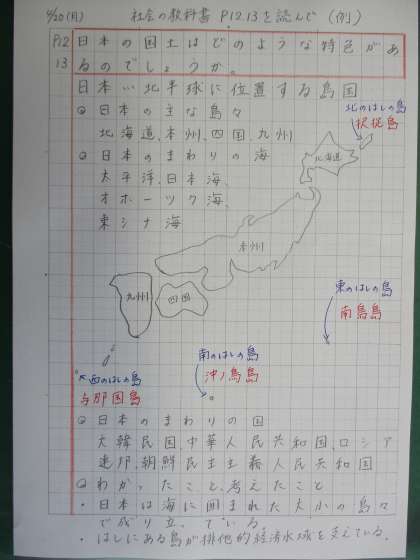 4/20(月) 社会の教科書 P12.13を読んで (例)
P12 13
日本の国土はどのような特色があ
るのでしょうか。
日本…北半球に位置する島国
◎日本の主な島々
北海道、本州、四国、九州
◎日本のまわりの海
太平洋、日本海、
オホーツク海、
東シナ海
北のはしの島
択捉島
北海道
本州
九州
四国
東のはしの島
南鳥島
南のはしの島
沖ノ鳥島
西のはしの島
与那国島
◎日本のまわりの国
大韓民国、中華人民共和国、ロシア
連邦、朝鮮民主主義人民共和国
◎わかったこと、考えたこと
・日本は海に囲まれた大小の島々
で成り立っている。
・はしにある島が排他的経済水域を支えている。